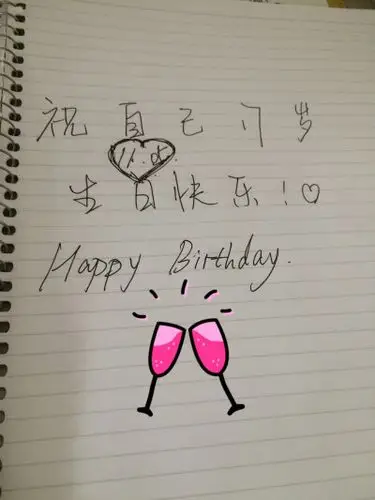 祝自己17岁
11.05.
生日快乐!♡
Happy Birthday.